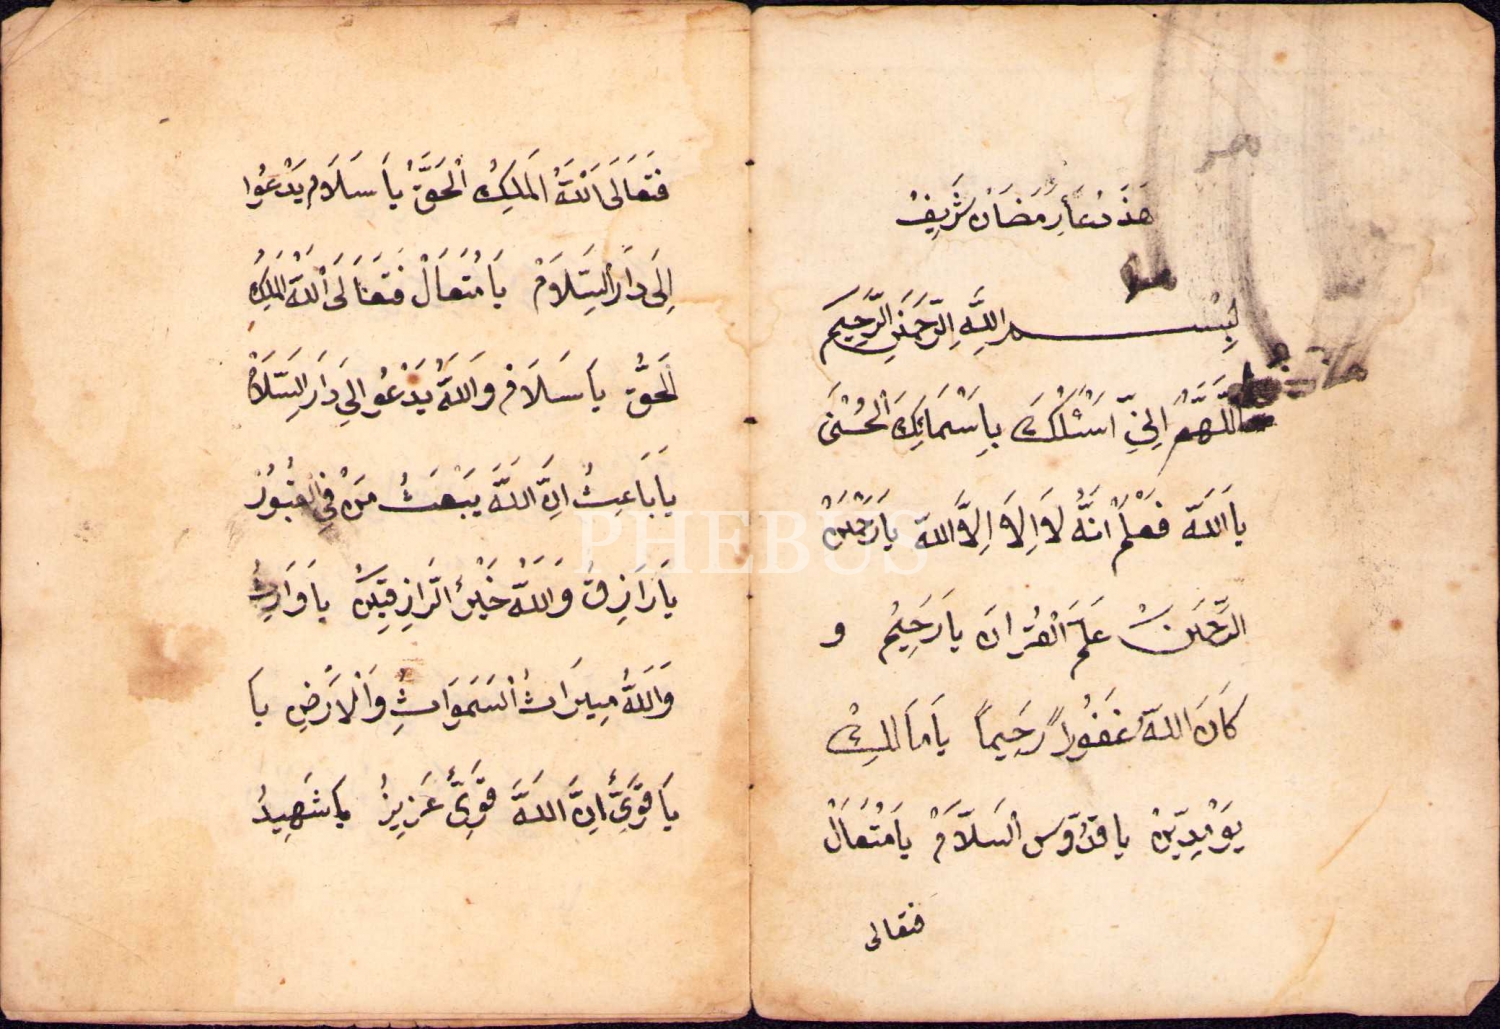 هَذَ دُعَأِ رَمَضَانْ شَرِيفْ
بِسْمِ اللَّهِ الرَّحْمَنِ الرَّحِيمِ
اَللَّهُمَّ اِنِّي اَسْئَلُكَ بِاَسْمَائِكَ الْحُسْنَى
يَا اَللَّه فَعْلَمْ اَنَّهُ لَا اِلَاهَ اِلَّا اللَّه يَا رَحْمَنْ
الرَّحْمَنْ عَلَّمَ الْقُرْانَ يَا رَحِيمُ و
كَانَ اللَّهُ غَفُورًا رَحِيمًا يَا مَالِكِ
يَوْمِدِّينْ يَا قُدُّوس السَلَّامْ يَا مُتْعَالْ
فتعالى
فَتَعَالَى اللَّهُ المَلِكُ الْحَقُّ يَا سَلَامُ يَدْعُوا
اِلَى دَارِ السَّلَامْ يَا مُتَعَالْ فَتَعَالَى اللَّهُ المَلِكُ
الْحَقُّ يَا سَلَامْ وَاللَّهُ يَدْعُو اِلَى دَارِ السَّلَامْ
يَا بَاعِثُ اِنَّ اللَّهَ يَبْعَثُ مَنْ فِي الْقُبُورْ
يَا رَازِقُ وَاللَّهُ خَيْرُ الرَّازِقِينْ يَا وَارِثُ
وَاللَّهُ مِيرَاثُ السَّمَوَاتِ وَالْاَرْضِ يَا
يَا قَوِيُّ اِنَّ اللَّهَ قَوِيٌّ عَزِيزُ يَا شَهِيدُ
PHEBUS